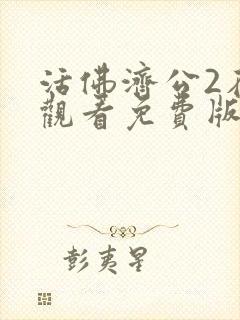 活佛濟公2
觀看免費版
彭夷星